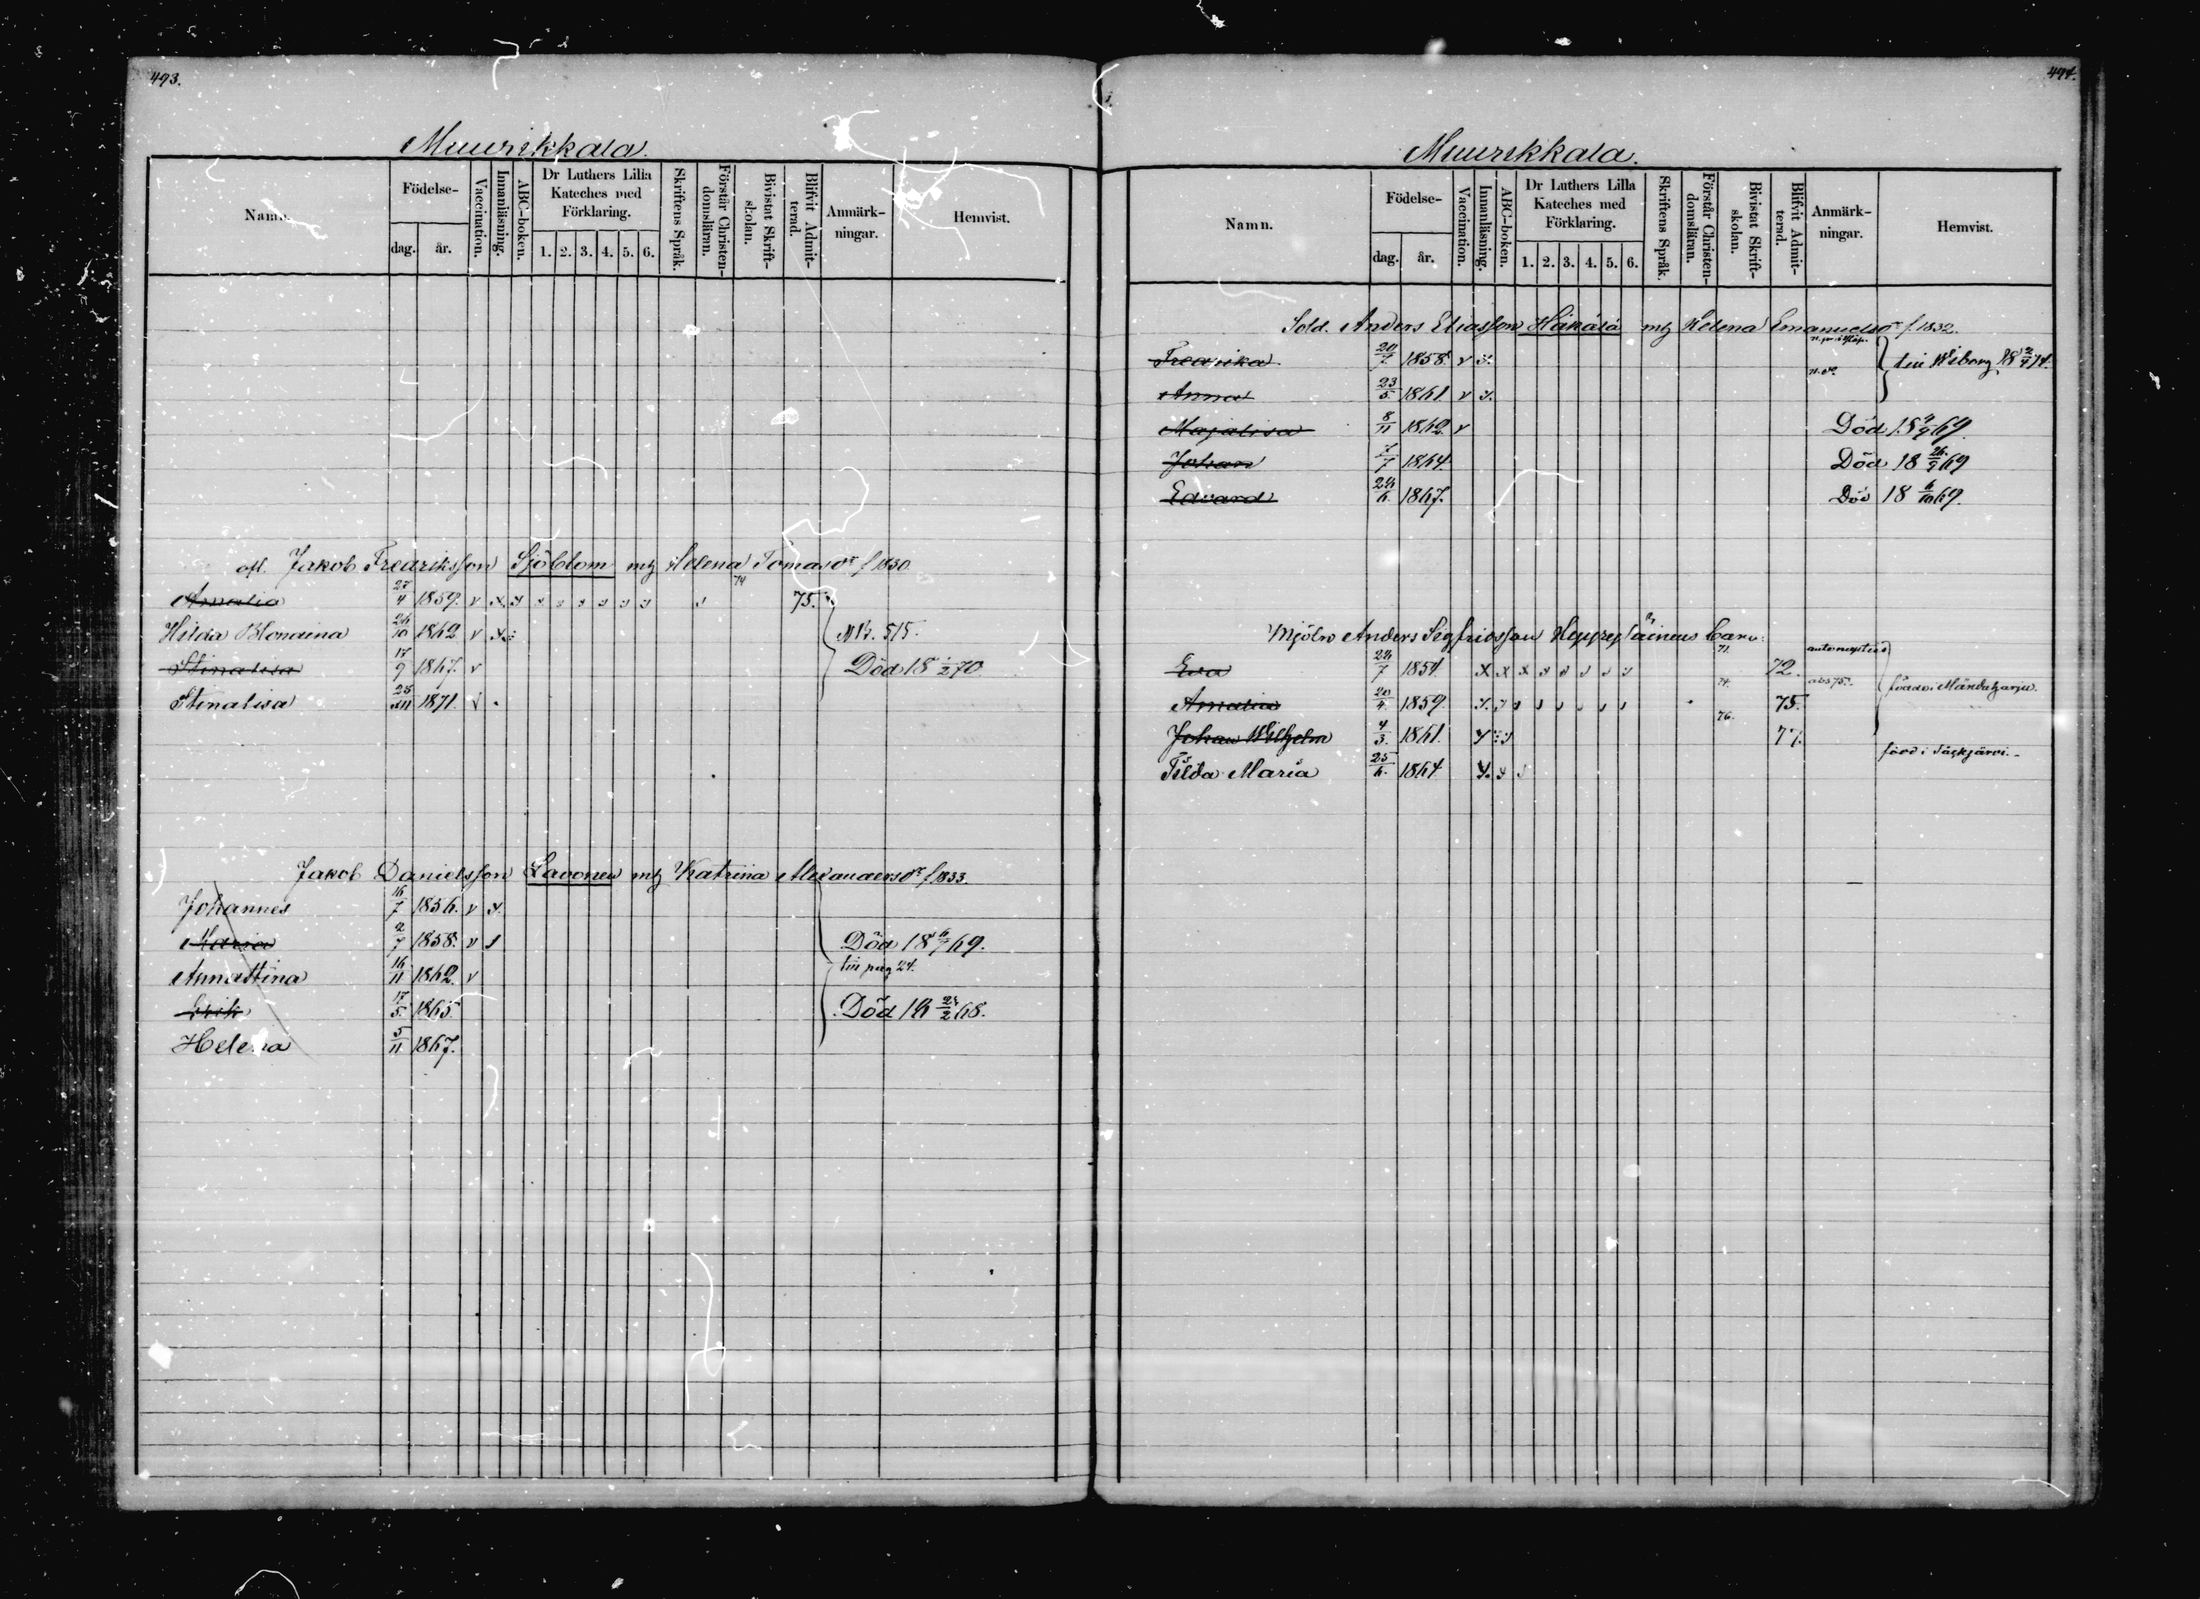 493.
Muurikkala.
Namn.
Födelse-
dag. år.
Vaccination.
Innanläsning.
ABC-boken.
Dr Luthers Lilla
Kateches med
Förklaring.
1. 2. 3. 4. 5. 6.
Skriftens Språk.
Förstår Christen-
domsläran.
Bivistat Skrift-
skolan.
Blifvit Admit-
terad.
Anmärk-
ningar.
Hemvist.
Jakob Fredriksson Sjöblom mh Helena Tomasdr f 1830.
74
Amalia 27/4 1859. v x y 75.
Hilda Blondina 26/10 1862 v x N B. 515.
Stinalisa 17/9 1867. v Död 18 1/2 70.
Stinalisa 25/11 1871. v
Jakob Danielsson Lavonen mh Katrina Alexandersdr f 1833.
Johannes 16/7 1856. v y.
Maria 2/7 1858. v Död 18 6/7 69.
Annastina 16/11 1862. v till pag 24.
Erik 17/5 1865. Död 18 24/2 68.
Helena 5/11 1867.
494.
Muurikkala.
Namn.
Födelse-
dag. år.
Vaccination.
Innanläsning.
ABC-boken.
Dr Luthers Lilla
Kateches med
Förklaring.
1. 2. 3. 4. 5. 6.
Skriftens Språk.
Förstår Christen-
domsläran.
Bivistat Skrift-
skolan.
Blifvit Admit-
terad.
Anmärk-
ningar.
Hemvist.
Sold. Anders Eliasson Häkälä mh Helena Emanuelsdr f 1832.
Fredrika 20/7 1858. v y. till Wiborg 18 2/4 74.
Anna 23/5 1861 v y.
Majalisa 8/11 1862. v Död 18 4/9 69.
Johan 7/7 1864 Död 18 26/9 69
Edvard 24/6 1867. Död 18 6/10 69.
Mjöln Anders Sigfridsson Barn:
71.
Eva 24/7 1854. x x x 72.
74. abs 75.
Amalia 20/4 1859. 75.
76.
Johan Wilhelm 4/3 1861. 77.
född i Säkjärvi.
Tilda Maria 25/6 1864